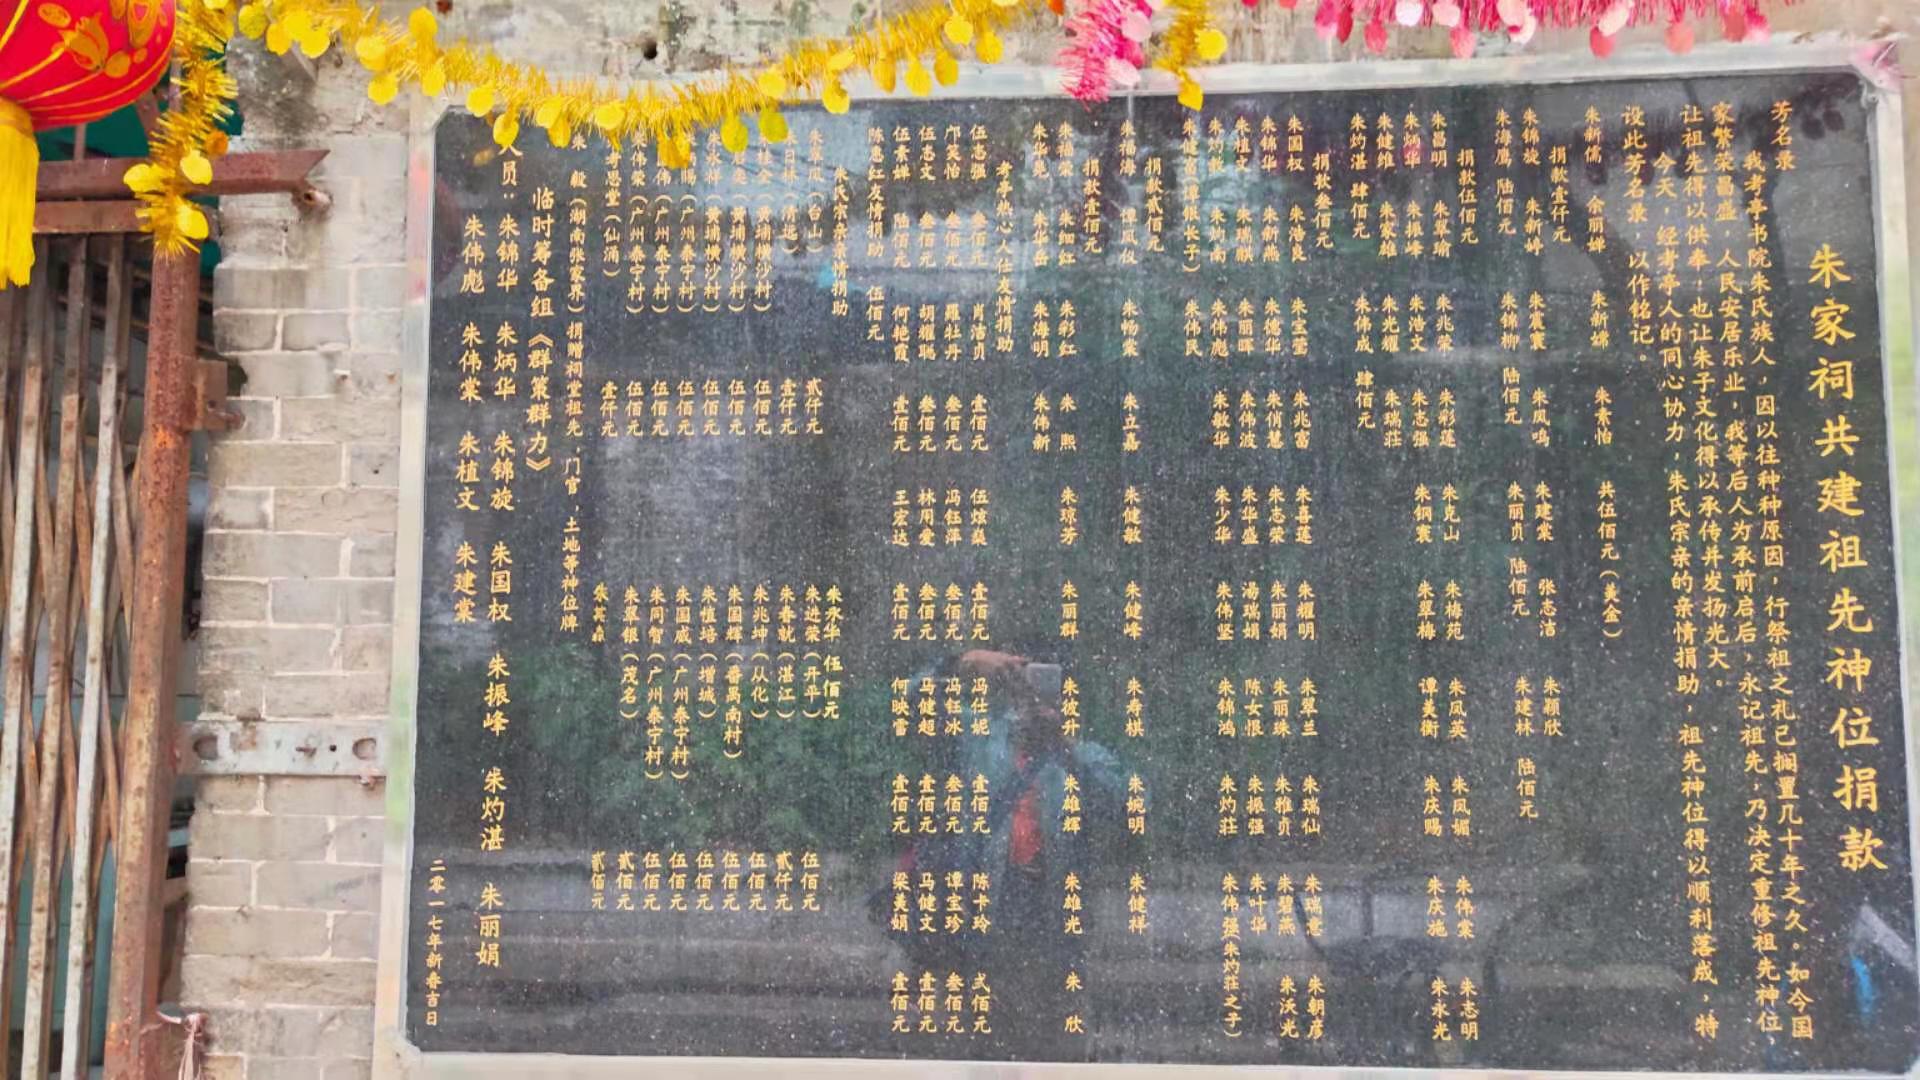 朱家祠共建祖先神位捐款
芳名录
我考亭书院朱氏族人，因以往种种原因，行祭祖之礼已搁置几十年之久。如今国
家繁荣昌盛，人民安居乐业，我等后人为承前启后，永记祖先，乃决定重修祖先神位，
让祖先得以供奉！也让朱子文化得以承传并发扬光大。
今天，经考亭人的同心协力，朱氏宗亲的亲情捐助，祖先神位得以顺利落成，特
设此芳名录，以作铭记。
朱新儒 余丽婵 朱新嫦 朱素怡 共伍佰元（美金）
捐款壹仟元
朱锦旋 朱新婷 朱震寰 朱凤鸣 朱建棠 张志洁 朱颖欣
朱海鹰 陆佰元 朱锦柳 陆佰元 朱丽贞 陆佰元 朱建林 陆佰元
捐款伍佰元
朱昌明 朱翠瑜 朱兆荣 朱彩莲 朱克山 朱梅苑 朱凤英 朱凤媚 朱伟棠 朱志明
朱炳华 朱振峰 朱浩文 朱志强 朱钢寰 朱翠梅 谭美衡 朱庆赐 朱庆施 朱永光
朱健维 朱家雄 朱光耀 朱瑞莊
朱灼湛 肆佰元 朱伟成 肆佰元
捐款叁佰元
朱国权 朱浩良 朱宝莹 朱兆富 朱喜莲 朱耀明 朱翠兰 朱瑞仙 朱瑞意 朱朝彦
朱锦华 朱新燕 朱德华 朱俏慧 朱志荣 朱丽娟 朱丽珠 朱雅贞 朱碧燕 朱沃光
朱植文 朱瑞麒 朱丽晖 朱伟波 朱华盛 汤瑞娟 陈女恨 朱振强 朱叶华
朱灼敦 朱均南 朱伟彪 朱敏华 朱少华 朱伟坚 朱锦鸿 朱灼莊 朱伟强（朱灼莊之子）
朱健富（谭银长子） 朱伟民
捐款贰佰元
朱福海 谭凤仪 朱畅棠 朱立嘉 朱健敏 朱健峰 朱寿棋 朱婉明 朱健祥
捐款壹佰元
朱福荣 朱细红 朱彩红 朱熙 朱琼芳 朱丽群 朱彼升 朱雄辉 朱雄光 朱欣
朱华尧 朱华岳 朱海明 朱伟新
考亭热心人仕友情捐助
伍志强 叁佰元 肖洁贞 壹佰元 伍炫燊 壹佰元 冯仕妮 壹佰元 陈卡玲 弍佰元
邝笑怡 叁佰元 罗牡丹 叁佰元 冯钰萍 叁佰元 冯钰冰 叁佰元 谭宝珍 叁佰元
伍志文 叁佰元 胡耀聪 叁佰元 林用爱 叁佰元 马健超 壹佰元 马健文 壹佰元
伍素婵 陆佰元 何艳霞 壹佰元 王宏达 壹佰元 何映雪 壹佰元 梁美娟 壹佰元
陈惠红友情捐助 伍佰元
朱氏宗亲亲情捐助
朱永华 伍佰元
朱翠凤（台山） 贰仟元 朱进荣（开平） 伍佰元
朱日林（清远） 壹仟元 朱春就（湛江） 贰仟元
朱桂全（黄埔横沙村） 伍佰元 朱兆坤（从化） 伍佰元
（黄埔横沙村） 伍佰元 朱国辉（番禺南村） 伍佰元
朱永祥（黄埔横沙村） 伍佰元 朱植培（增城） 伍佰元
（广州泰宁村） 伍佰元 朱国威（广州泰宁村） 伍佰元
（广州泰宁村） 伍佰元 朱同智（广州泰宁村） 伍佰元
朱伟荣（广州泰宁村） 伍佰元 朱翠银（茂名） 贰佰元
考思堂（仙涌） 壹仟元 朱其森 贰佰元
朱毅（湖南张家界）捐赠祠堂祖先，门官，土地等神位牌
临时筹备组《群策群力》
人员：朱锦华 朱炳华 朱锦旋 朱国权 朱振峰 朱灼湛 朱丽娟
朱伟彪 朱伟棠 朱植文 朱建棠
二零一七年新春吉日